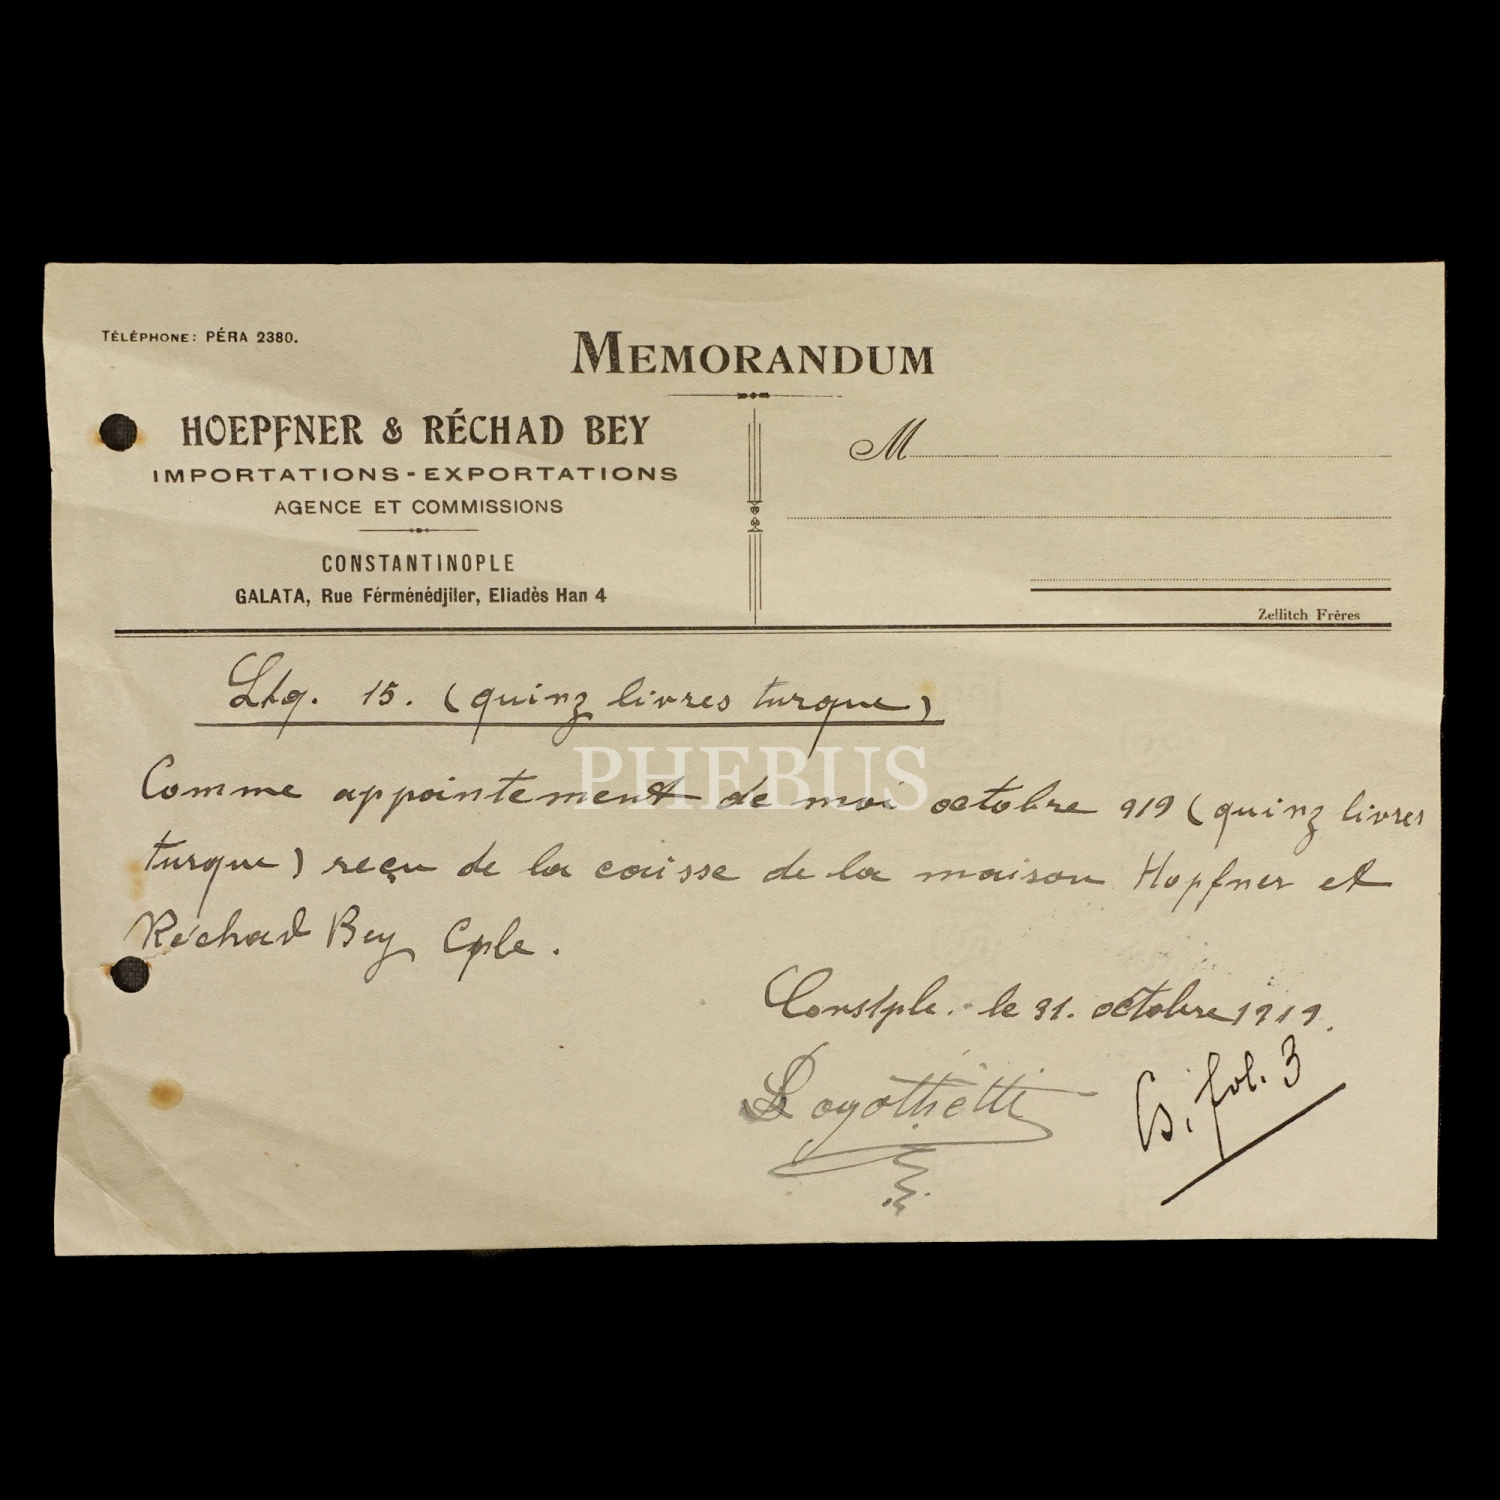 TÉLÉPHONE: PÉRA 2380.
MEMORANDUM
HOEPFNER & RÉCHAD BEY
IMPORTATIONS-EXPORTATIONS
AGENCE ET COMMISSIONS
CONSTANTINOPLE
GALATA, Rue Férménédjiler, Eliadès Han 4
M
Zellitch Frères
Ltq. 15. (quinz livres turque)
PHEBUS
Comme appointement de moi octobre 919 (quinz livres
turque) reçu de la caisse de la maison Hopfner et
Réchad Bey Cple.
Constple. le 31. octobre 1919.
Logothétti
Cs, fol. 3